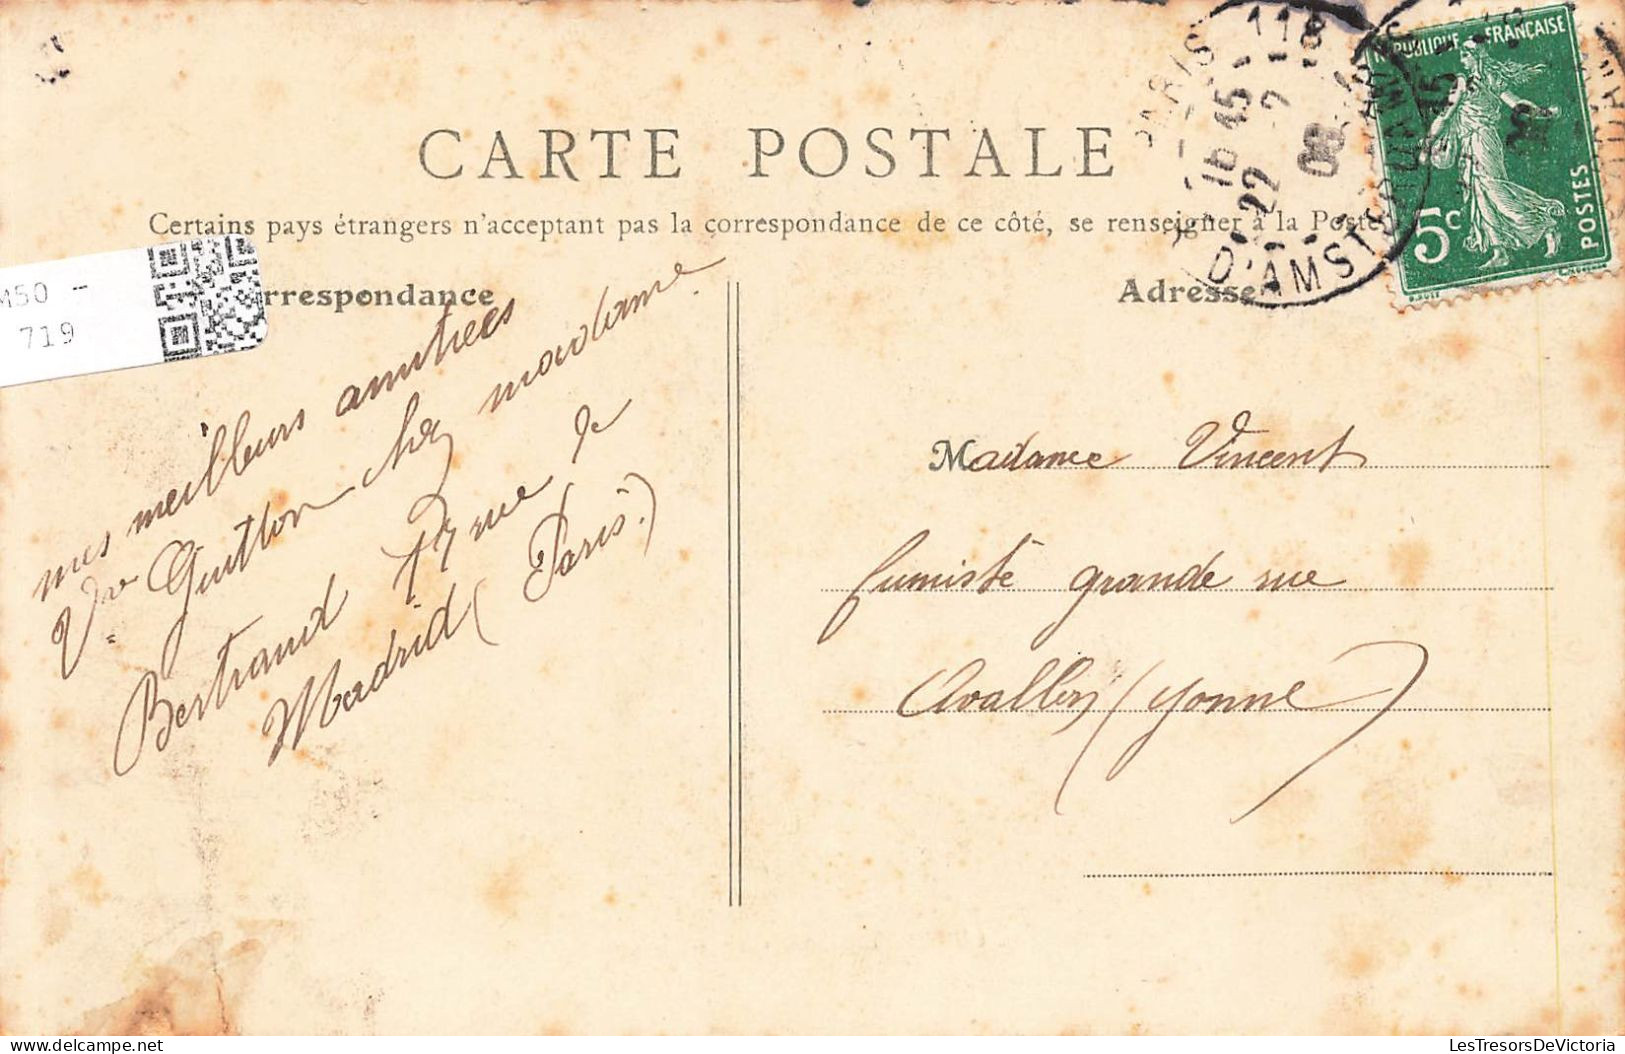 CARTE POSTALE
Certains pays étrangers n'acceptant pas la correspondance de ce côté, se renseigner à la Poste
rrespondance
Adresse
M50 -
719
mes meilleurs amitiées
Vve Guitton chez madame
Bertrand 17 rue de
Madrid (Paris.)
Madame Vincent
fumiste grande rue
Avallon (Yonne)
PARIS - 118
16 45
22 - 2
08
D'AMSTERDAM
RÉPUBLIQUE FRANÇAISE
5c
POSTES
delcampe.net
LesTresorsDeVictoria